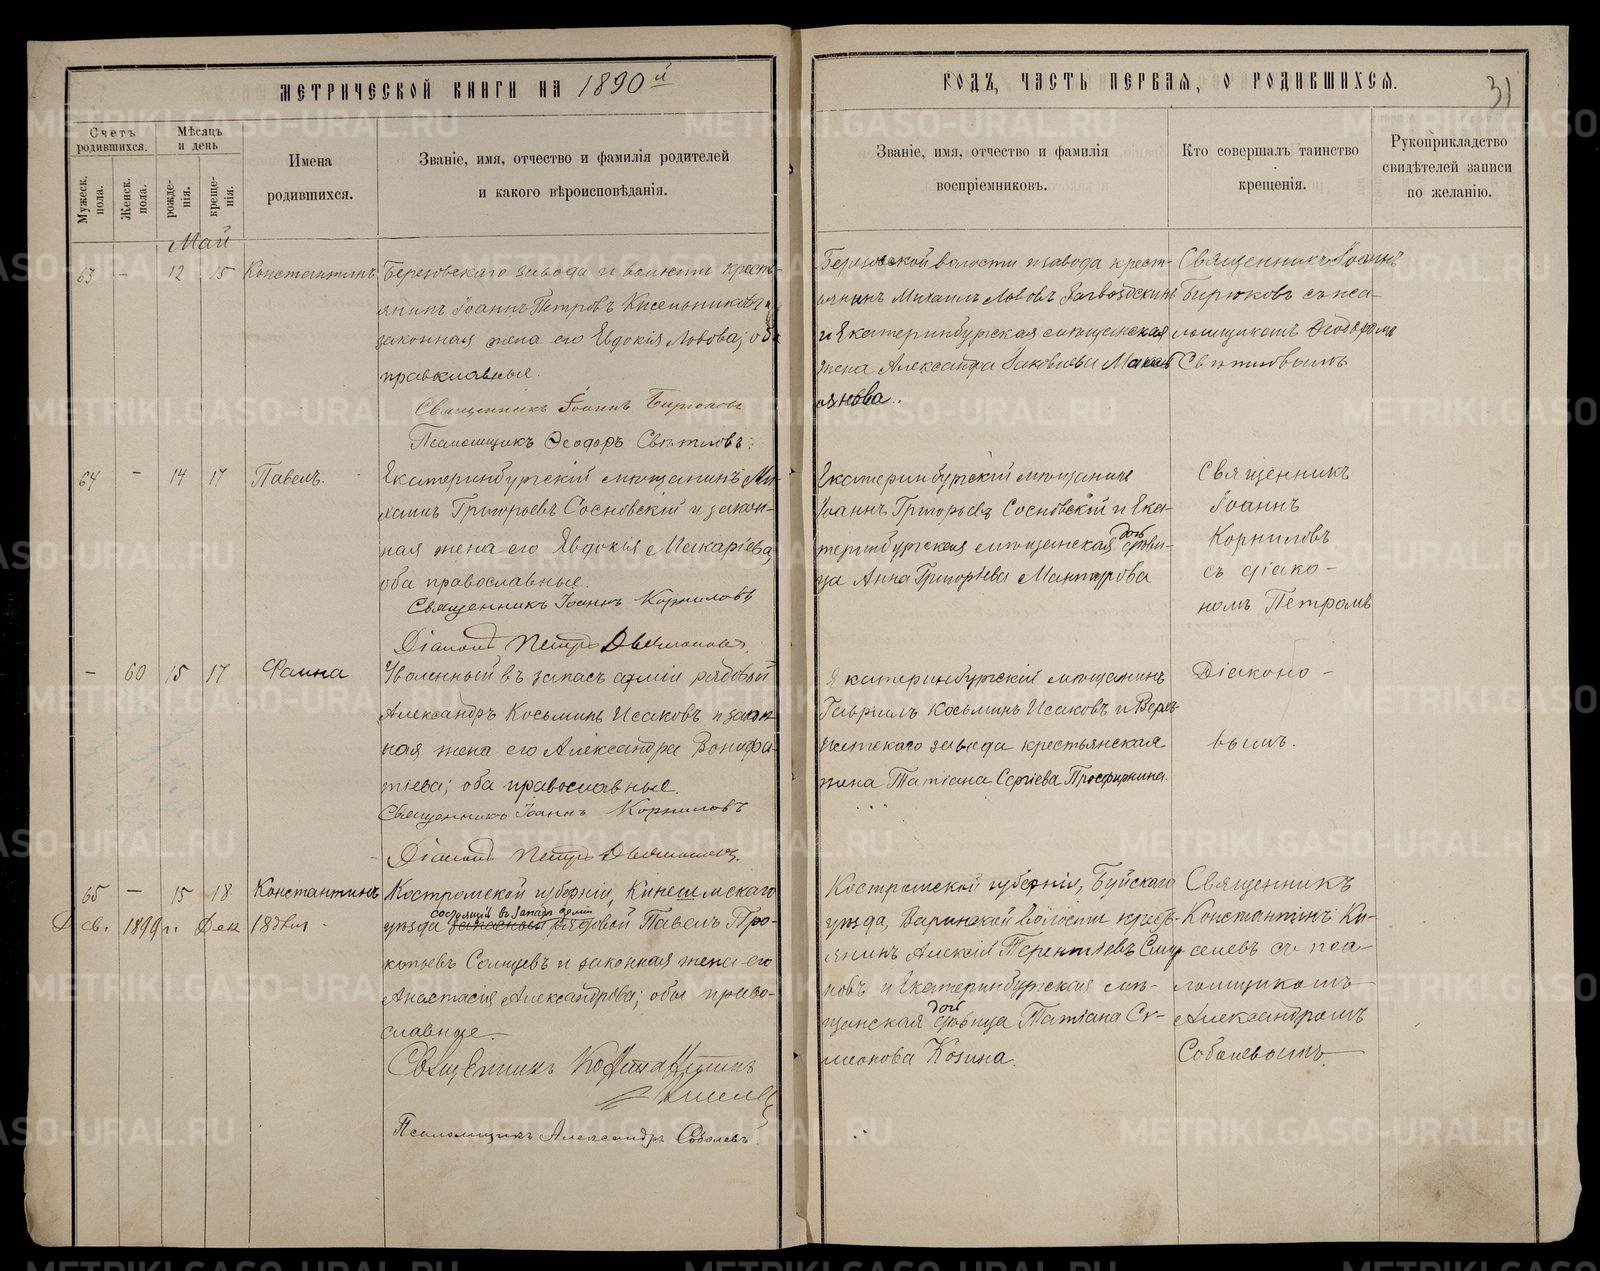 МЕТРИЧЕСКОЙ КНИГИ НА 1890й
ГОДЪ, ЧАСТЬ ПЕРВАЯ, О РОДИВШИХСЯ.
31
Счетъ родившихся.
Мужеск. пола.
Женск. пола.
Мѣсяцъ и день
рожде-
нія.
креще-
нія.
Имена
родившихся.
Званіе, имя, отчество и фамилія родителей
и какого вѣроисповѣданія.
Званіе, имя, отчество и фамилія
воспріемниковъ.
Кто совершалъ таинство
крещенія.
Рукоприкладство
свидѣтелей записи
по желанію.
Май
63 - 12 15 Константинъ
Березовскаго завода и волости кресть-
янинъ Іоаннъ Петровъ Кисельниковъ и
законная жена его Евдокія Львова; оба
православные.
Священникъ Іоаннъ Бирюковъ
Псаломщикъ Ѳеодоръ Свѣтловъ.
Березовской волости и завода кресть-
янинъ Михаилъ Львовъ Загвоздкинъ
и Екатеринбургская мѣщанская
жена Александра Іаковлева
Священникъ Іоаннъ
Бирюковъ съ пса-
ломщикомъ Ѳеодоромъ
Свѣтловымъ
64 - 14 17 Павелъ.
Екатеринбургскій мѣщанинъ Ми-
хаилъ Григорьевъ Сосновскій и закон-
ная жена его Евдокія Макаріева,
оба православные.
Священникъ Іоаннъ Корниловъ
Діаконъ Петръ
Екатеринбургскій мѣщанинъ
Іоаннъ Григорьевъ Сосновскій и Ека-
теринбургская мѣщанская дочь дѣви-
ца Анна Григорьева Мантурова
Священникъ
Іоаннъ
Корниловъ
съ діако-
номъ Петромъ
- 60 15 17 Фаина
Уволенный въ запасъ арміи рядовый
Александръ Косьминъ Исаковъ и закон-
ная жена его Александра Вонифа-
тіева; оба православные.
Священникъ Іоаннъ Корниловъ
Діаконъ Петръ
Екатеринбургскій мѣщанинъ
Гавріилъ Косьминъ Исаковъ и Верхъ-
Исетскаго завода крестьянская
жена Татіана Сергіева Просфирнина.
Діаконо-
вымъ.
65 - 15 18 Константинъ
Д св. 1899 г. Дек 18 дня
Костромской губерніи, Кинешмскаго
уѣзда состоящій въ запасѣ арміи рядовой Павелъ Про-
копьевъ Солнцевъ и законная жена его
Анастасія Александрова; оба право-
славные
Священникъ Константинъ
Киселевъ
Псаломщикъ Александръ Соболевъ.
Костромской губерніи, Буйскаго
уѣзда, волости кресть-
янинъ Алексій Терентіевъ Смир-
новъ и Екатеринбургская мѣ-
щанская дочь дѣвица Татіана Си-
меонова Козина.
Священникъ
Константинъ Ки-
селевъ съ пса-
ломщикомъ
Александромъ
Соболевымъ
METRIKI.GASO-URAL.RU